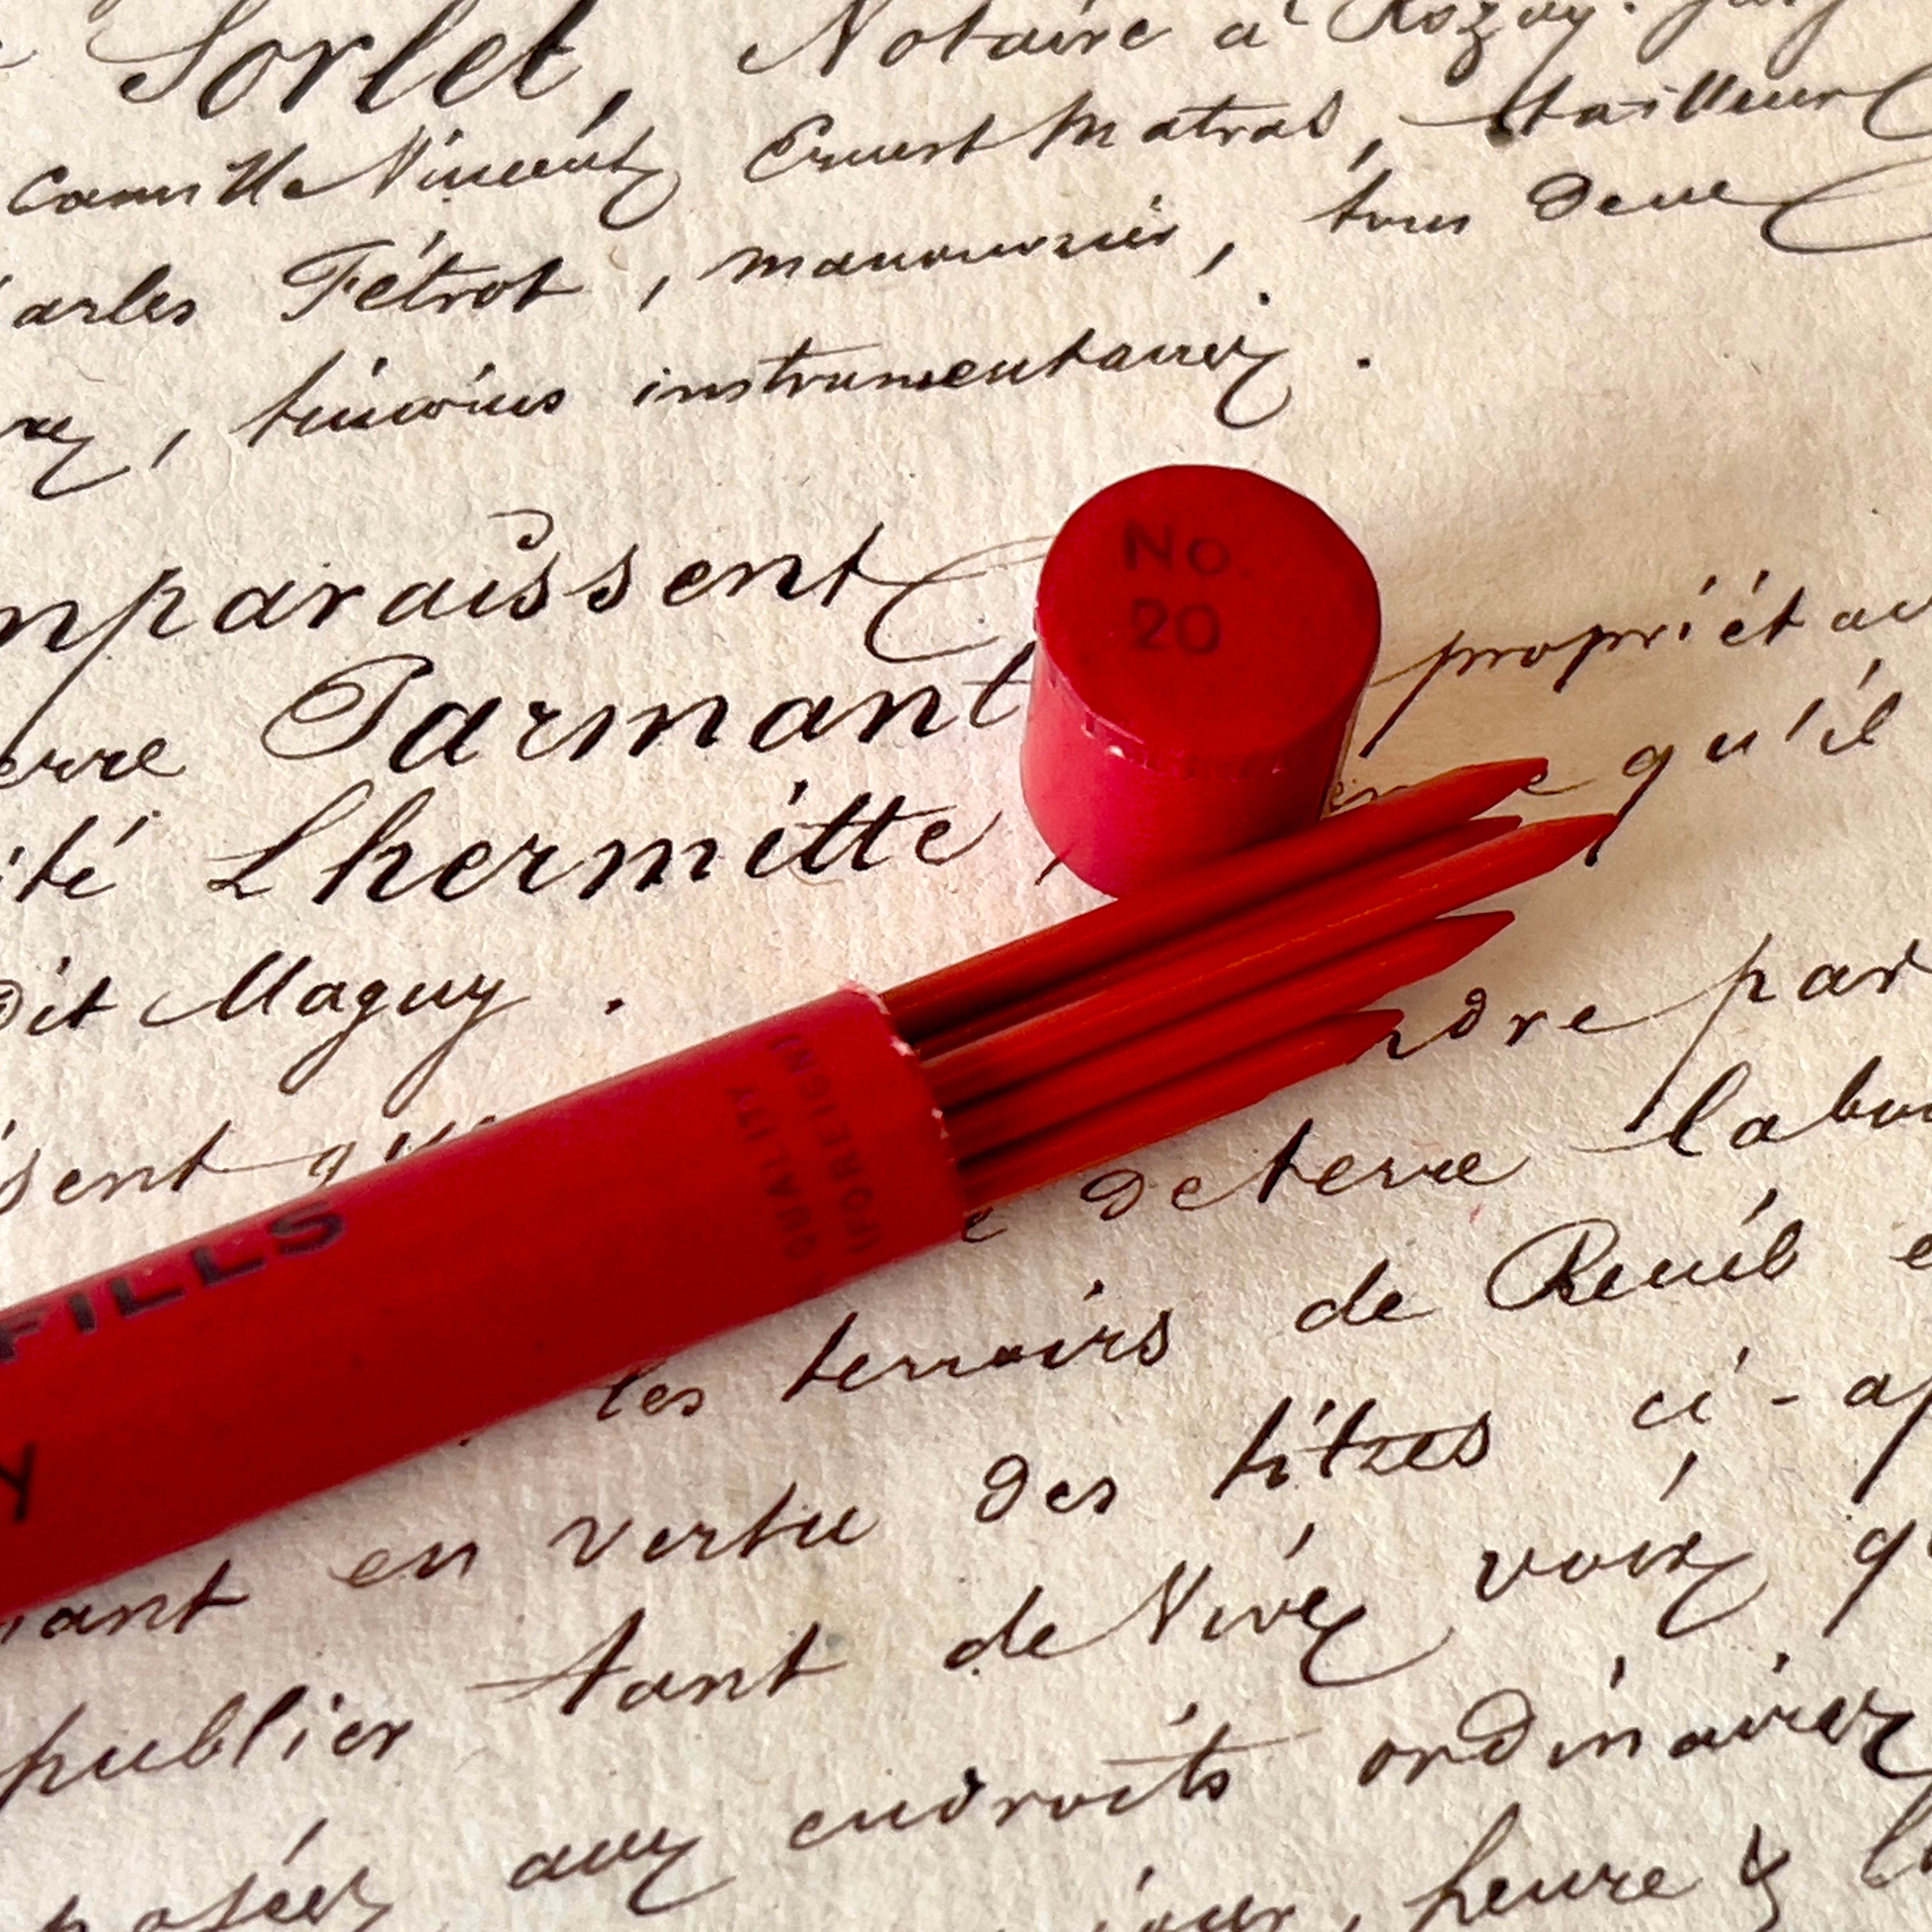 Sorlet, Notaire à Rozoy.
Camille Vincent Ernest Matras, tailleur
arles Fétrot, manouvrier, tous deux
, témoins instrumentaires.
mparaissent
erre Parmant propriétai
ité Lhermitte, qu'il
dit Maguy.
ndre par
sent que
de terre labou
les terroirs de Reuil e
ant en vertu des titres ci-ap
publier tant de Vive voix q
posées aux endroits ordinaires
jour, heure & l
No.
20
QUALITY
(FOREIGN)
FILLS
Y